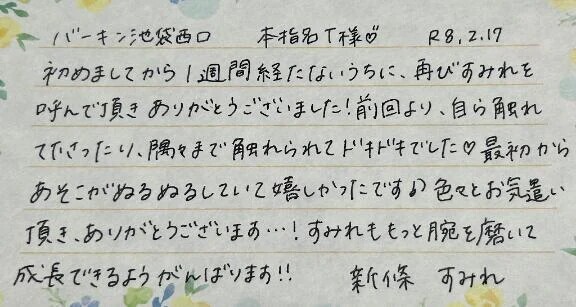 バーキン池袋西口 本指名T様♡ R8.2.17
初めましてから1週間経たないうちに、再びすみれを
呼んで頂きありがとうございました!前回より、自ら触れ
てださったり、隅々まで触れられてドキドキでした♡最初から
あそこがぬるぬるしていて嬉しかったです♪色々とお気遣い
頂き、ありがとうございます…!すみれももっと腕を磨いて
成長できるようがんばります!! 新條 すみれ